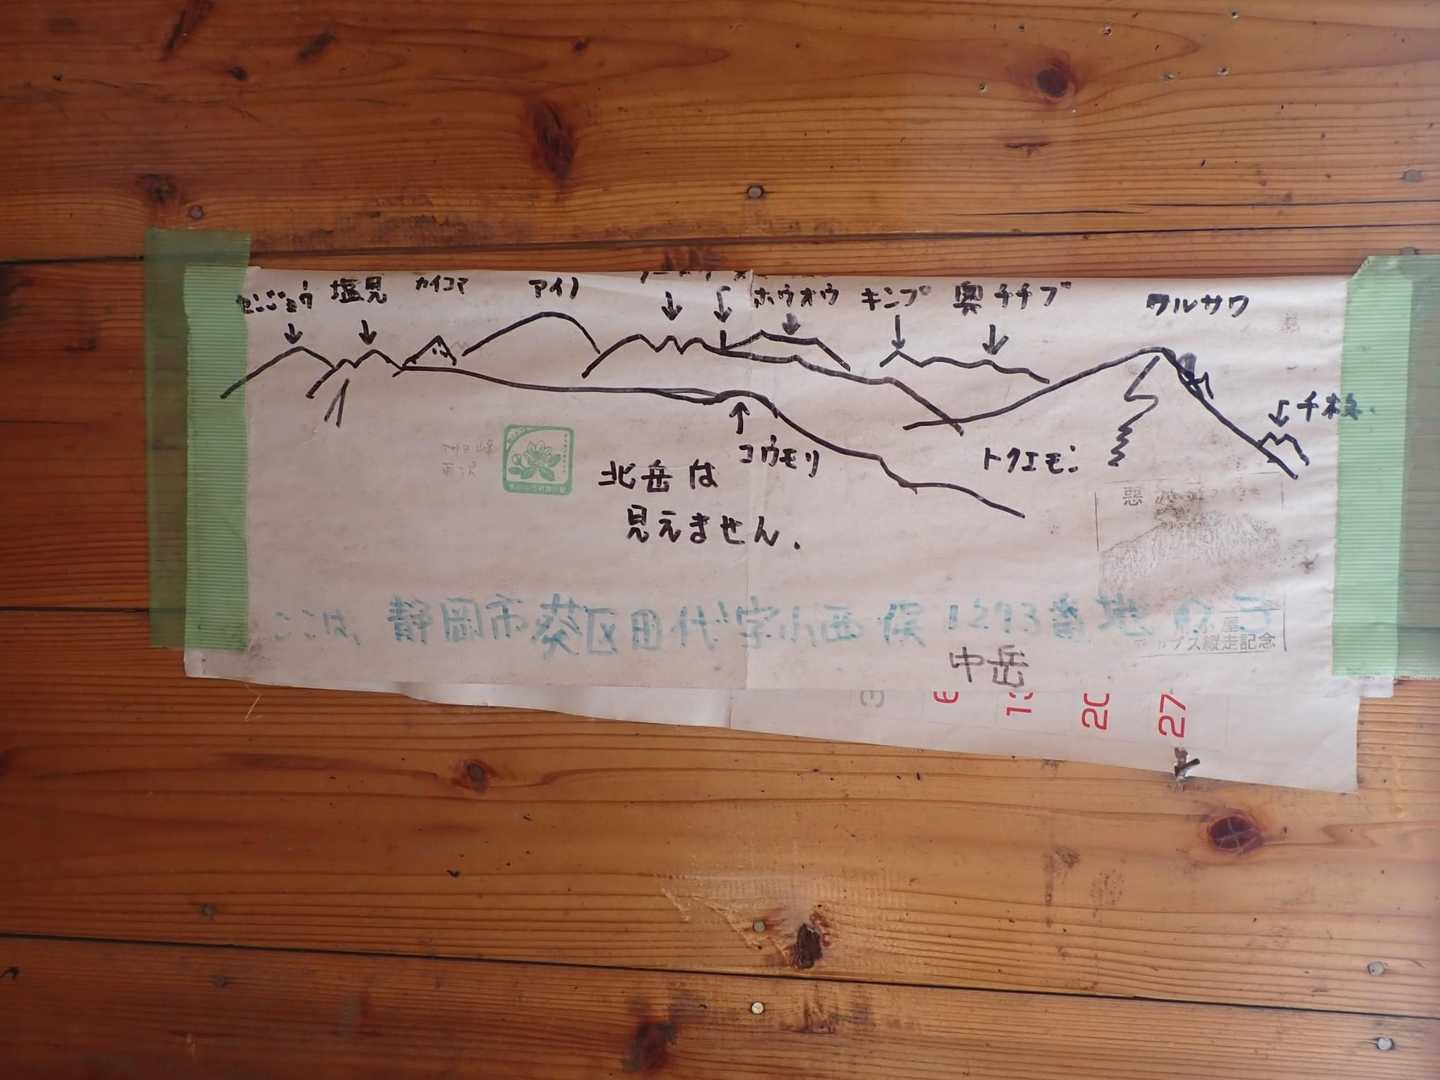 センジョウ
塩見
カイコマ
アイノ
ホウオウ
キンプ
奥チチブ
ワルサワ
千枚
コウモリ
トクエモン
北岳は
見えません.
ここは、静岡市葵区田代字小西俣1293番地
中岳
プス縦走記念
3
6
13
20
27